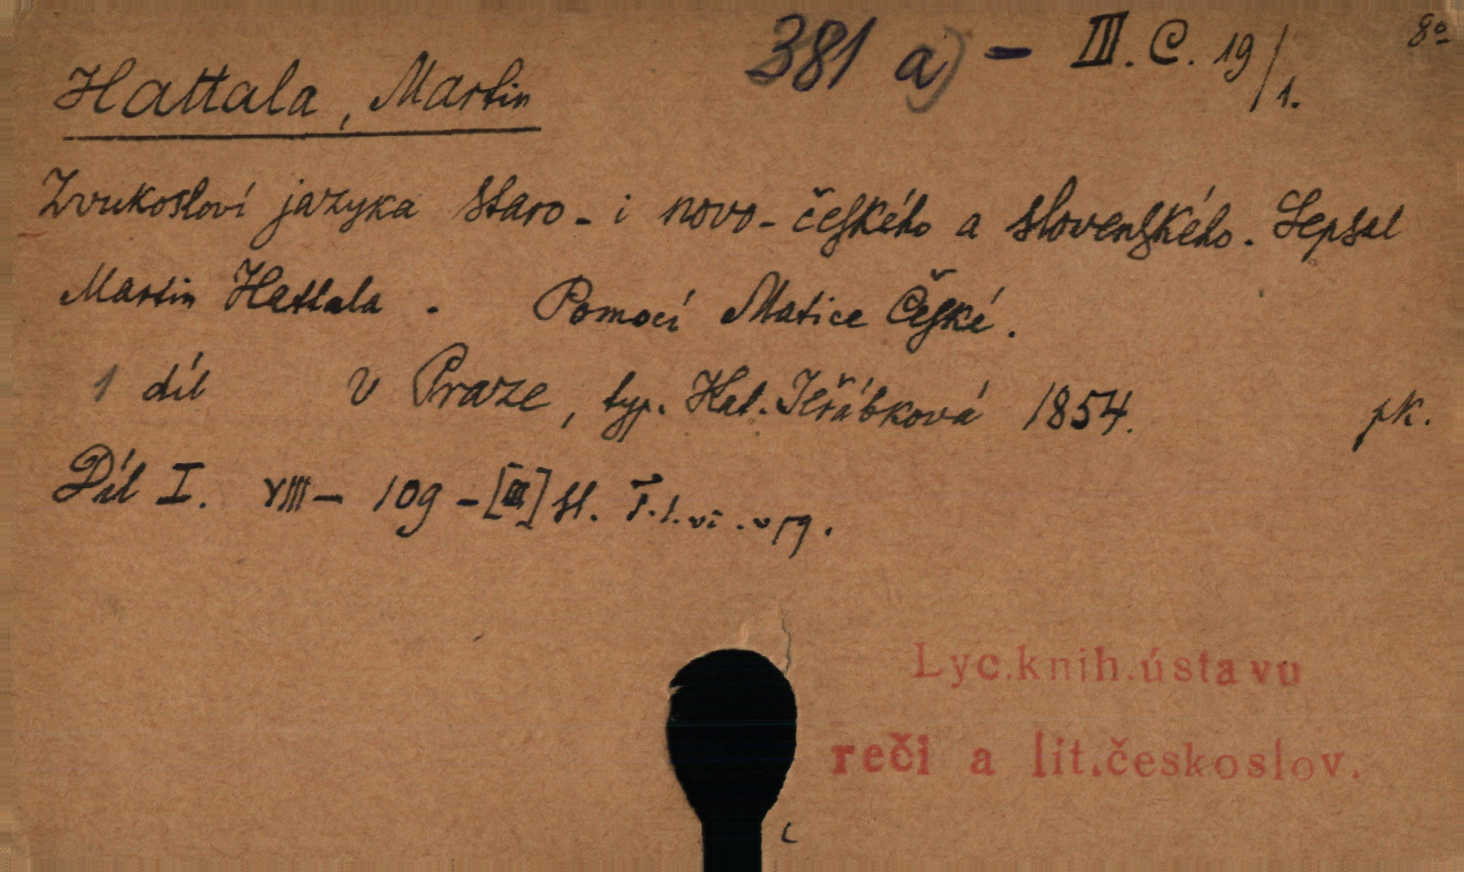 381 a) – III. C. 19/1. 8º
Hattala, Martin
Zvukosloví jazyka staro- i novo-českého a slovenského. Sepsal
Martin Hattala. Pomocí Matice České.
1 díl V Praze, typ. Kat. Jeřábková 1854. pk.
Díl I. VIII – 109 – [III] st.
Lyc.knih.ústavu
reči a lit.českoslov.